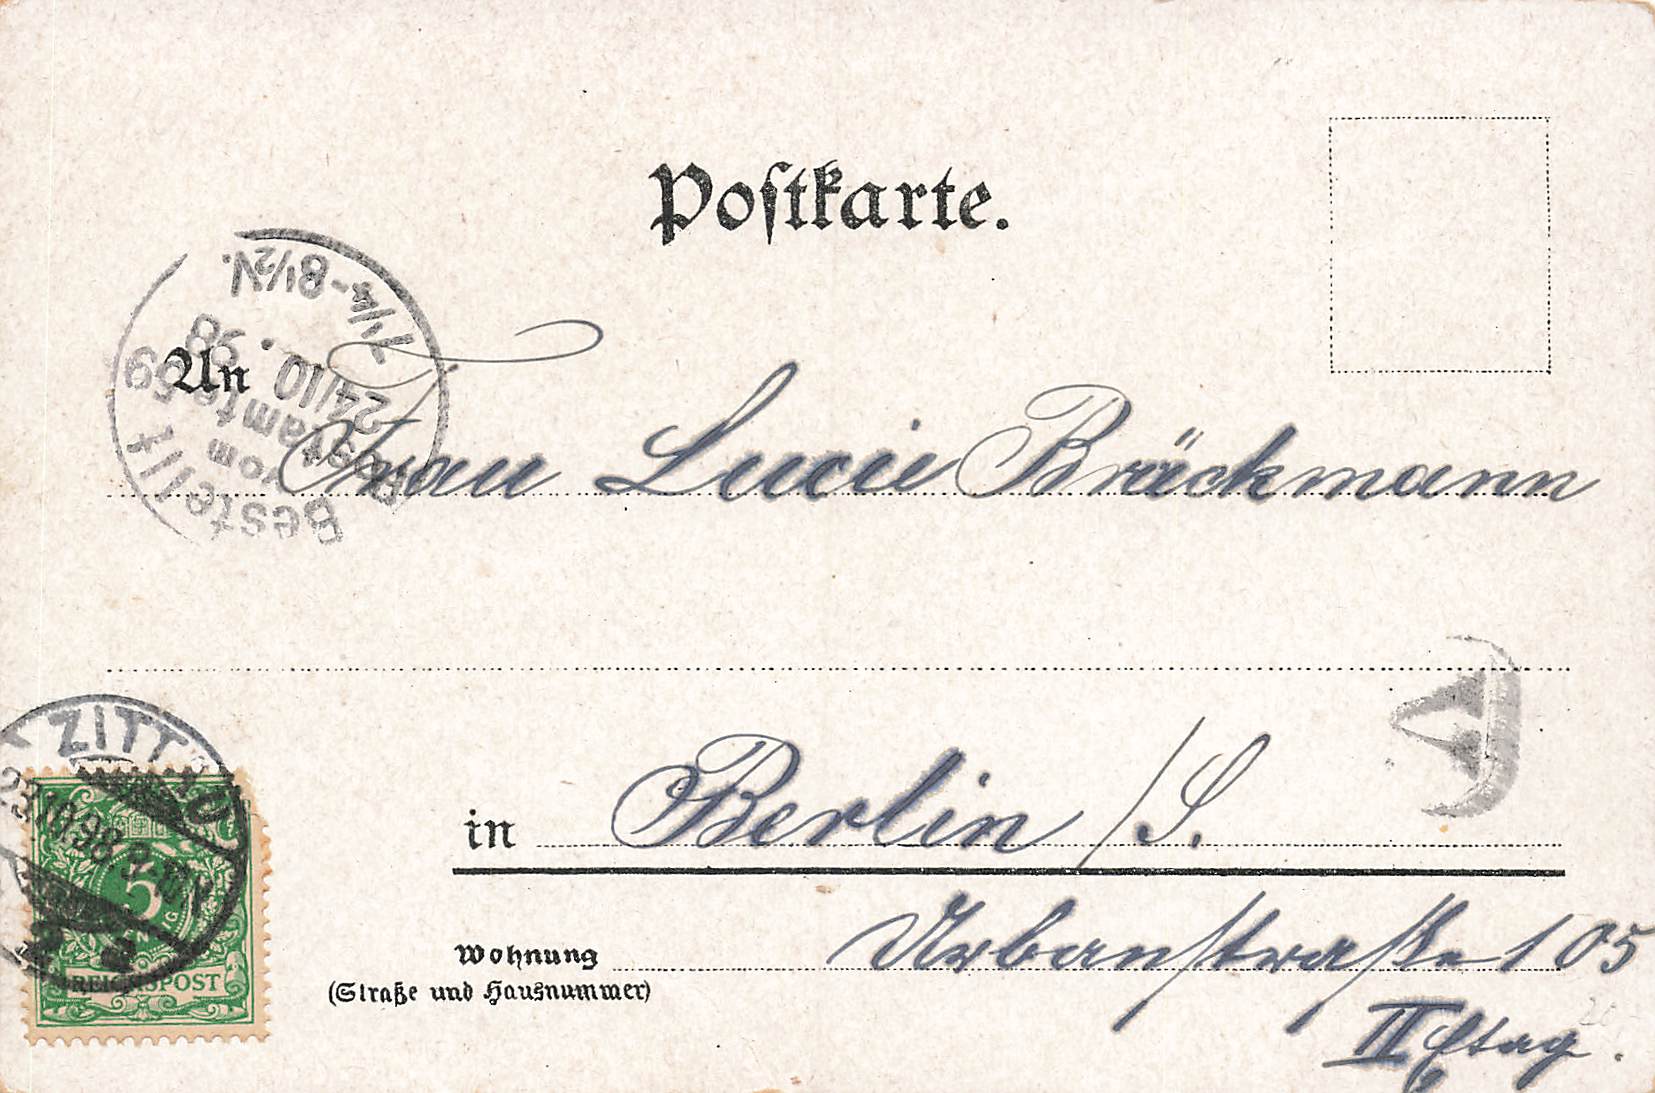 Postkarte.
7¼-8½V.
24/10.98
Bestellt
vom
Postamte 59
An
Frau Lucie Bräckmann
in Berlin/S.
Wohnung
(Straße und Hausnummer)
Urbanstraße 105
II Etag.
ZITTAU
23.10.98.
REICHSPOST
5
T
20,-